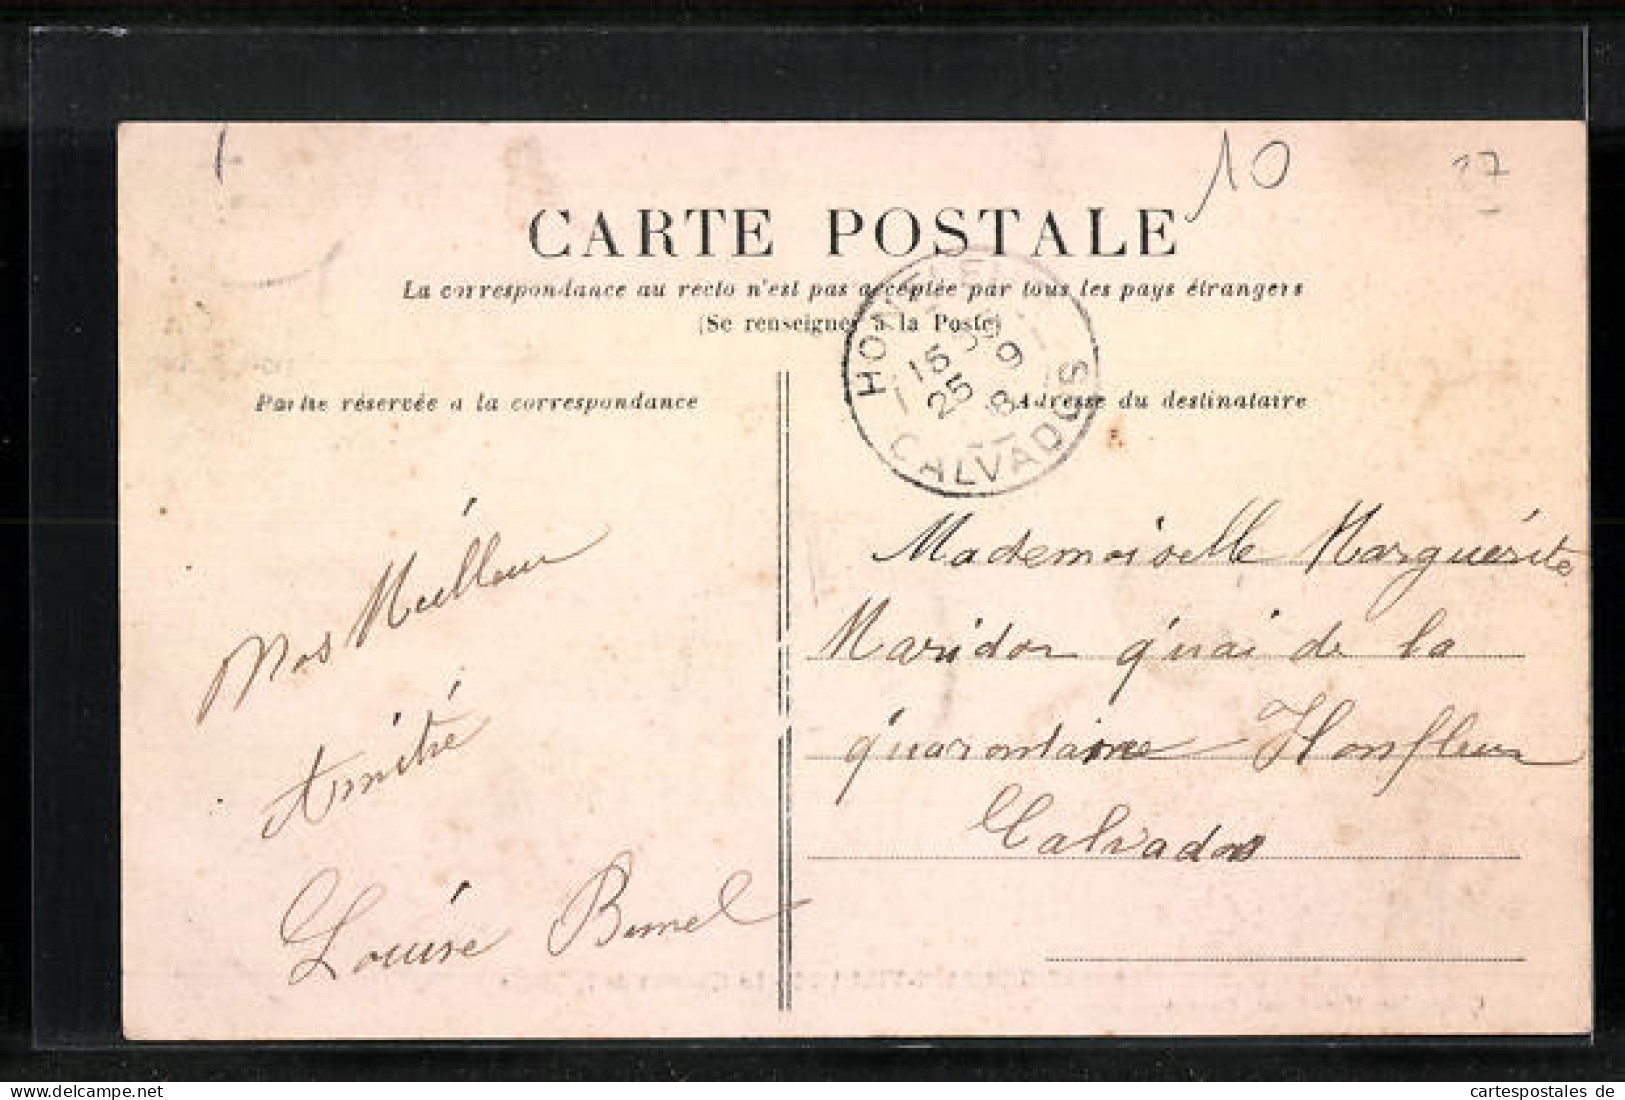 10
27
CARTE POSTALE
La correspondance au recto n'est pas acceptée par tous les pays étrangers
(Se renseigner à la Poste)
HONFLEUR
15
25 9
8
CALVADOS
Partie réservée a la correspondance
Adresse du destinataire
Mos Meilleur
Amitié
Louise Bunel
Mademoiselle Marguérite
Maridor quai de la
quarantaine Honfleur
Calvados
cartespostales.de